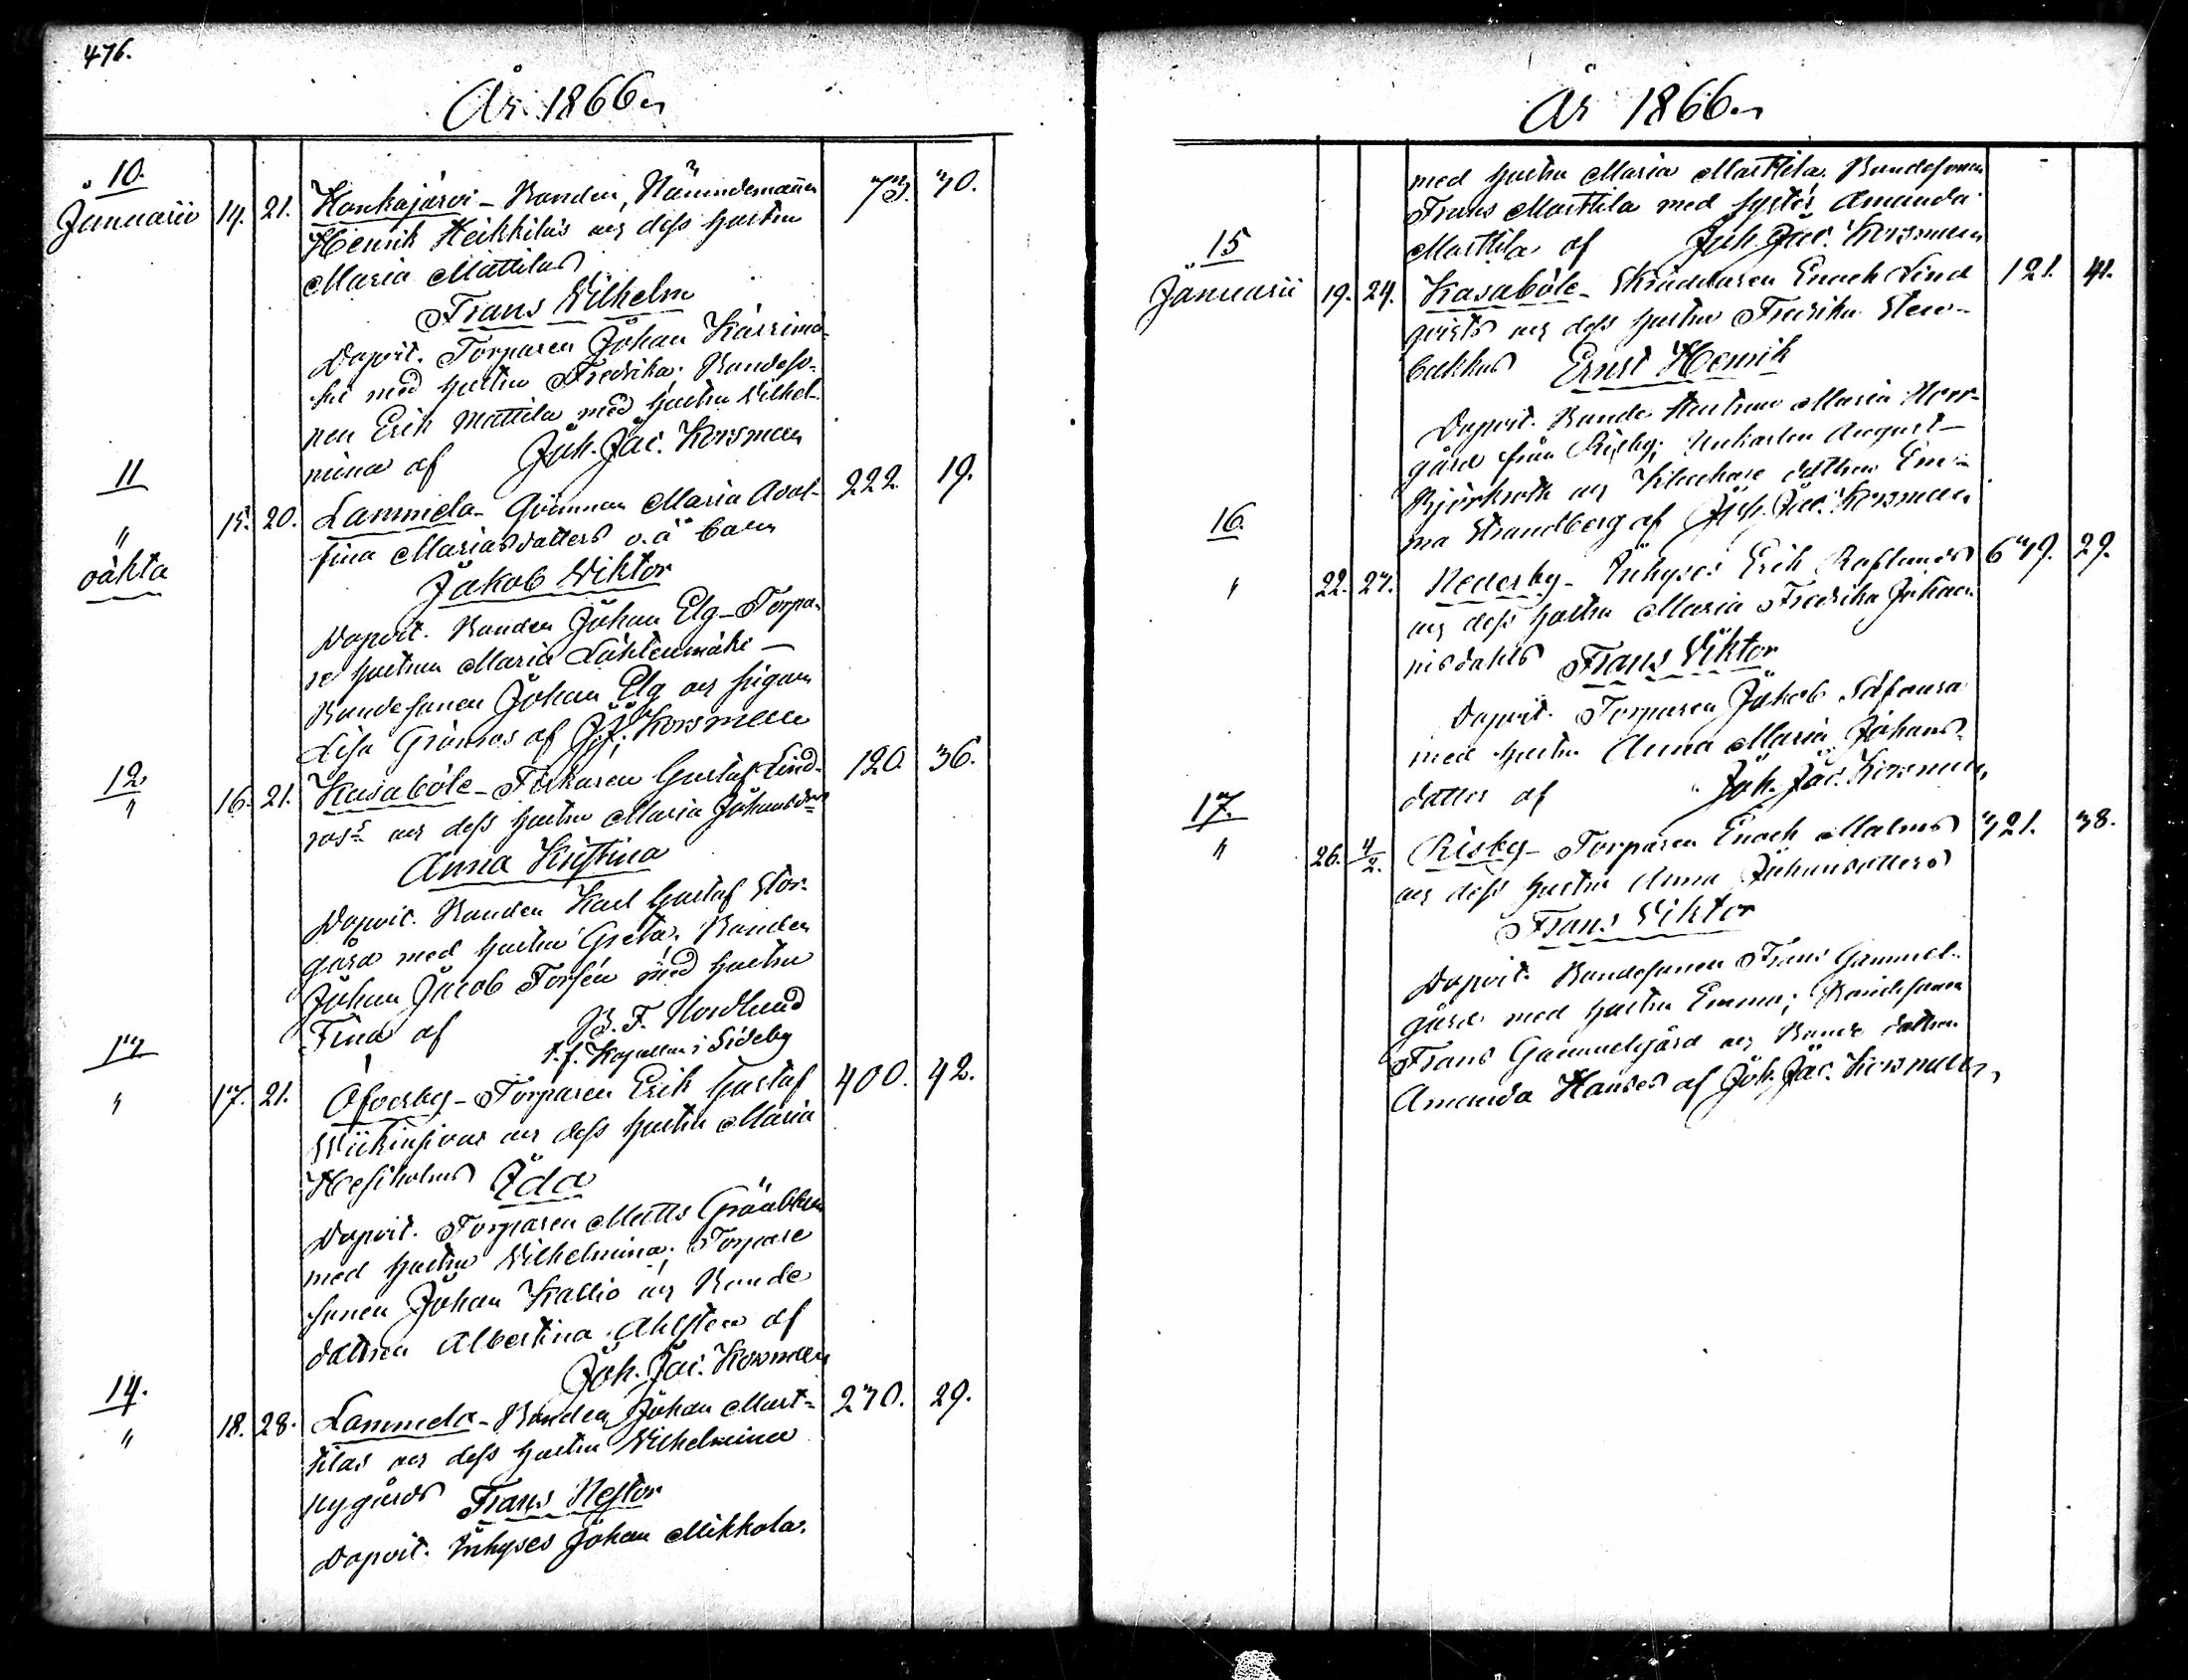 476.
År 1866
10.
Januarii 14. 21. Honkajärvi - Bonden, Nämndemannen 73. 30.
Henrik Heikkiläs och dess hustru
Maria Mattilas
Frans Wilhelm
Dopvit. Torparen Johan Kärrimä-
ki med hustru Fredrika. Bondeso-
nen Erik Mattila med hustru Wilhel-
mina af Joh. Jac. Korsman
11
" 15. 20. Lammela - Qvinnan Maria Adol- 222. 19.
fina Mariasdotters o.ä. barn
oäkta
Jakob Wiktor
Dopvit. Bonden Johan Elg - Torpa-
re hustrun Maria Lähtenmäki -
Bondesonen Johan Elg och pigan
Lisa Grönroos af J.J. Korsman
12
" 16. 21. Kasaböle - Fiskaren Gustaf Lind- 120. 36.
ros's och dess hustru Maria Johansdrs
Anna Kristina
Dopvit. Bonden Karl Gustaf Stor-
gård med hustru Greta. Bonden
Johan Jacob Forsén med hustru
Fina af B. F. Nordlund
t.f. Kapellan i Sideby
13
" 17. 21. Öfverby - Torparen Erik Gustaf 400. 42.
och dess hustru Maria
Ida
Dopvit. Torparen Matts
med hustru Wilhelmina. Torpare
sonen Johan Kallio och Bonde
dottren Albertina Ahlsten af
Joh. Jac. Korsman
14.
" 18. 28. Lammela - Bonden Johan Mart- 230. 29.
tilas och dess hustru Wilhelmina
Nygårds Frans Nestor
Dopvit. Inhyses Johan Mikkola
År 1866
med hustru Maria Marttila. Bondesonen
Frans Marttila med syster Amanda
Marttila af Joh. Jac. Korsman
15
Januarii 19. 24. Kasaböle - Skräddaren Enoch Lind 121. 41.
qvists och dess hustru Fredrika Sten-
backas Ernst Henrik
Dopvit. Bonde Hustrun Maria Norr-
gård från Risby; Unkarlen August
Björkroth och dottren Em-
ma Strandberg af Joh. Jac. Korsman
16.
" 22. 27. Nederby - Inhyses Erik Roslunds 639. 29.
och dess hustru Maria Fredrika Johan-
nisdahls Frans Viktor
Dopvit. Torparen Jakob Säfvara
med hustru Anna Maria Johans-
dotter af Joh. Jac. Korsman
17.
" 26. 4/2. Risby - Torparen Enoch Malms 321. 38.
och dess hustru Anna Johansdotters
Frans Viktor
Dopvit. Bondesonen Frans Gammel-
gård med hustru Emma; Bondesonen
Frans Gammelgård och Bonde dottren
Amanda Hanses af Joh. Jac. Korsman